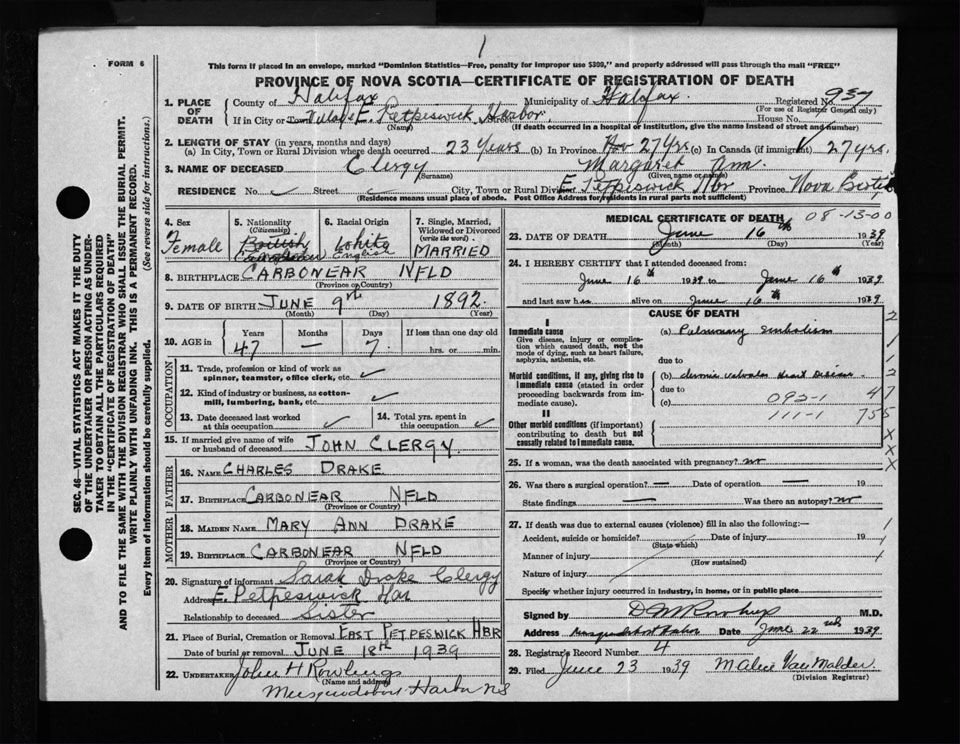 1
FORM 6
This form if placed in an envelope, marked "Dominion Statistics—Free, penalty for improper use $300," and properly addressed will pass through the mail "FREE"
PROVINCE OF NOVA SCOTIA—CERTIFICATE OF REGISTRATION OF DEATH
SEC. 46—VITAL STATISTICS ACT MAKES IT THE DUTY
OF THE UNDERTAKER OR PERSON ACTING AS UNDER-
TAKER TO OBTAIN ALL THE PARTICULARS REQUIRED
IN THE "CERTIFICATE OF REGISTRATION OF DEATH"
AND TO FILE THE SAME WITH THE DIVISION REGISTRAR WHO SHALL ISSUE THE BURIAL PERMIT.
WRITE PLAINLY WITH UNFADING INK. THIS IS A PERMANENT RECORD.
Every item of Information should be carefully supplied. (See reverse side for instructions.)
1. PLACE OF DEATH
County of Halifax Municipality of Halifax. Registered No. 937
(For use of Registrar General only)
If in City or Town Village E. Petpeswick Harbor. House No.
(Name) (If death occurred in a hospital or institution, give the name instead of street and number)
2. LENGTH OF STAY (in years, months and days)
(a) In City, Town or Rural Division where death occurred 23 Years (b) In Province 27 Yrs (c) In Canada (if immigrant) 27 yrs.
3. NAME OF DECEASED Clergy Margaret Ann.
(Surname) (Given name or names)
RESIDENCE No. ✓ Street ✓ City, Town or Rural Division E Petpeswick Hbr Province Nova Scotia
(Residence means usual place of abode. Post Office Address for residents in rural parts not sufficient)
4. Sex Female
5. Nationality (Citizenship) British
6. Racial Origin White English
7. Single, Married, Widowed or Divorced (write the word) MARRIED
8. BIRTHPLACE CARBONEAR NFLD
(Province or Country)
9. DATE OF BIRTH JUNE 9th 1892.
(Month) (Day) (Year)
10. AGE in Years 47 Months — Days 7 If less than one day old hrs. or min.
OCCUPATION
11. Trade, profession or kind of work as spinner, teamster, office clerk, etc. ✓
12. Kind of industry or business, as cotton-mill, lumbering, bank, etc. ✓
13. Date deceased last worked at this occupation ✓
14. Total yrs. spent in this occupation ✓
15. If married give name of wife or husband of deceased JOHN CLERGY.
FATHER
16. NAME CHARLES DRAKE
17. BIRTHPLACE CARBONEAR NFLD
(Province or Country)
MOTHER
18. MAIDEN NAME MARY ANN DRAKE
19. BIRTHPLACE CARBONEAR NFLD
(Province or Country)
20. Signature of informant Sarah Drake Clergy
Address E. Petpeswick Har
Relationship to deceased Sister
21. Place of Burial, Cremation or Removal EAST PETPESWICK HBR
Date of burial or removal JUNE 18th 1939
22. UNDERTAKER John H Rowlings
(Name and address)
Musquodoboit Harbor NS
MEDICAL CERTIFICATE OF DEATH 08-13-00
23. DATE OF DEATH June 16th 1939
(Month) (Day) (Year)
24. I HEREBY CERTIFY that I attended deceased from:
June 16th 1939 to June 16th 1939
and last saw h alive on June 16th 1939
CAUSE OF DEATH
I
Immediate cause
Give disease, injury or complication which caused death, not the mode of dying, such as heart failure, asphyxia, asthenia, etc.
(a) Pulmonary Embolism
due to
Morbid conditions, if any, giving rise to immediate cause (stated in order proceeding backwards from immediate cause).
(b) chronic valvular Heart Disease
due to
(c) 092-1
111-1
II
Other morbid conditions (if important) contributing to death but not causally related to immediate cause.
2
1
1
2
47
755
X
X
X
25. If a woman, was the death associated with pregnancy? no
26. Was there a surgical operation? — Date of operation —
State findings — Was there an autopsy? no
27. If death was due to external causes (violence) fill in also the following:—
Accident, suicide or homicide? Date of injury 19
(State which)
Manner of injury
(How sustained)
Nature of injury
Specify whether injury occurred in industry, in home, or in public place
Signed by M.D.
Address Musquodoboit Harbor Date June 22nd 1939
28. Registrar's Record Number 4
29. Filed June 23 1939 Van Malder
(Division Registrar)